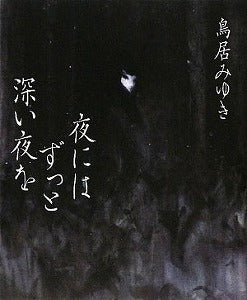 鳥居みゆき
夜には
ずっと
深い夜を